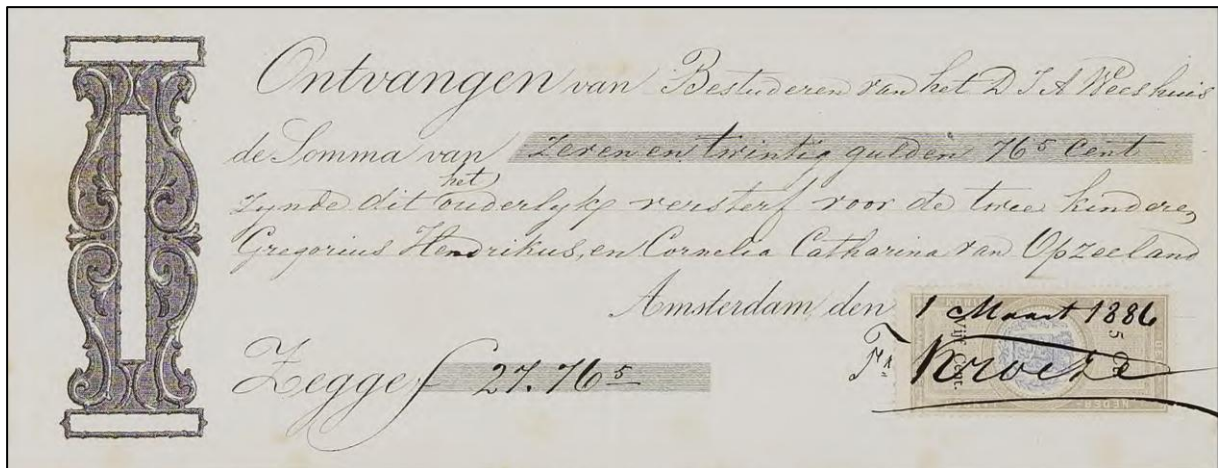 Ontvangen van Bestuderen van het D I A Weeshuis
de Somma van Zeven en twintig gulden 76⁵ Cent
zynde dit het ouderlyk versterf voor de twee kindere,
Gregorius Hendrikus, en Cornelia Catharina van Opzeeland
Amsterdam, den 1 Maart 1886
Zegge f 27.76⁵
Kroeze
5 C